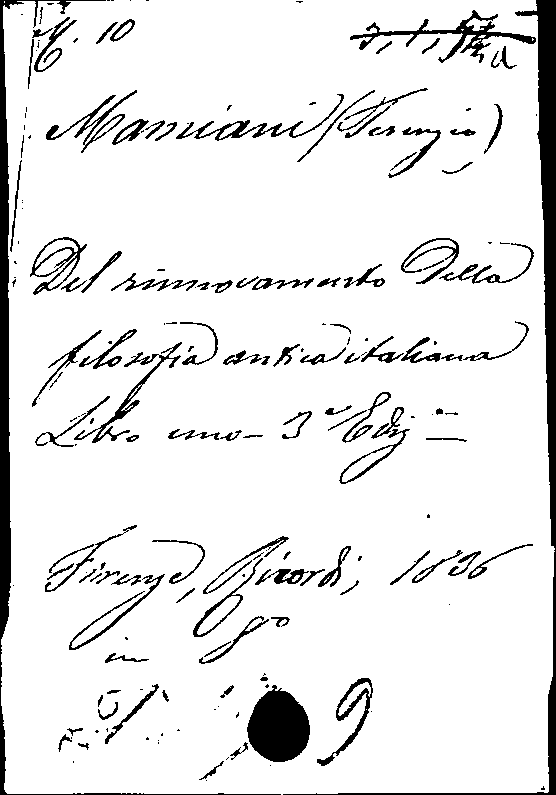 M. 10
Mamiani (Terenzio)
Del rinnovamento della
filosofia antica italiana
Libro uno - 3ª Ediz.ne
Firenze, Ricordi, 1836
in 8º
9